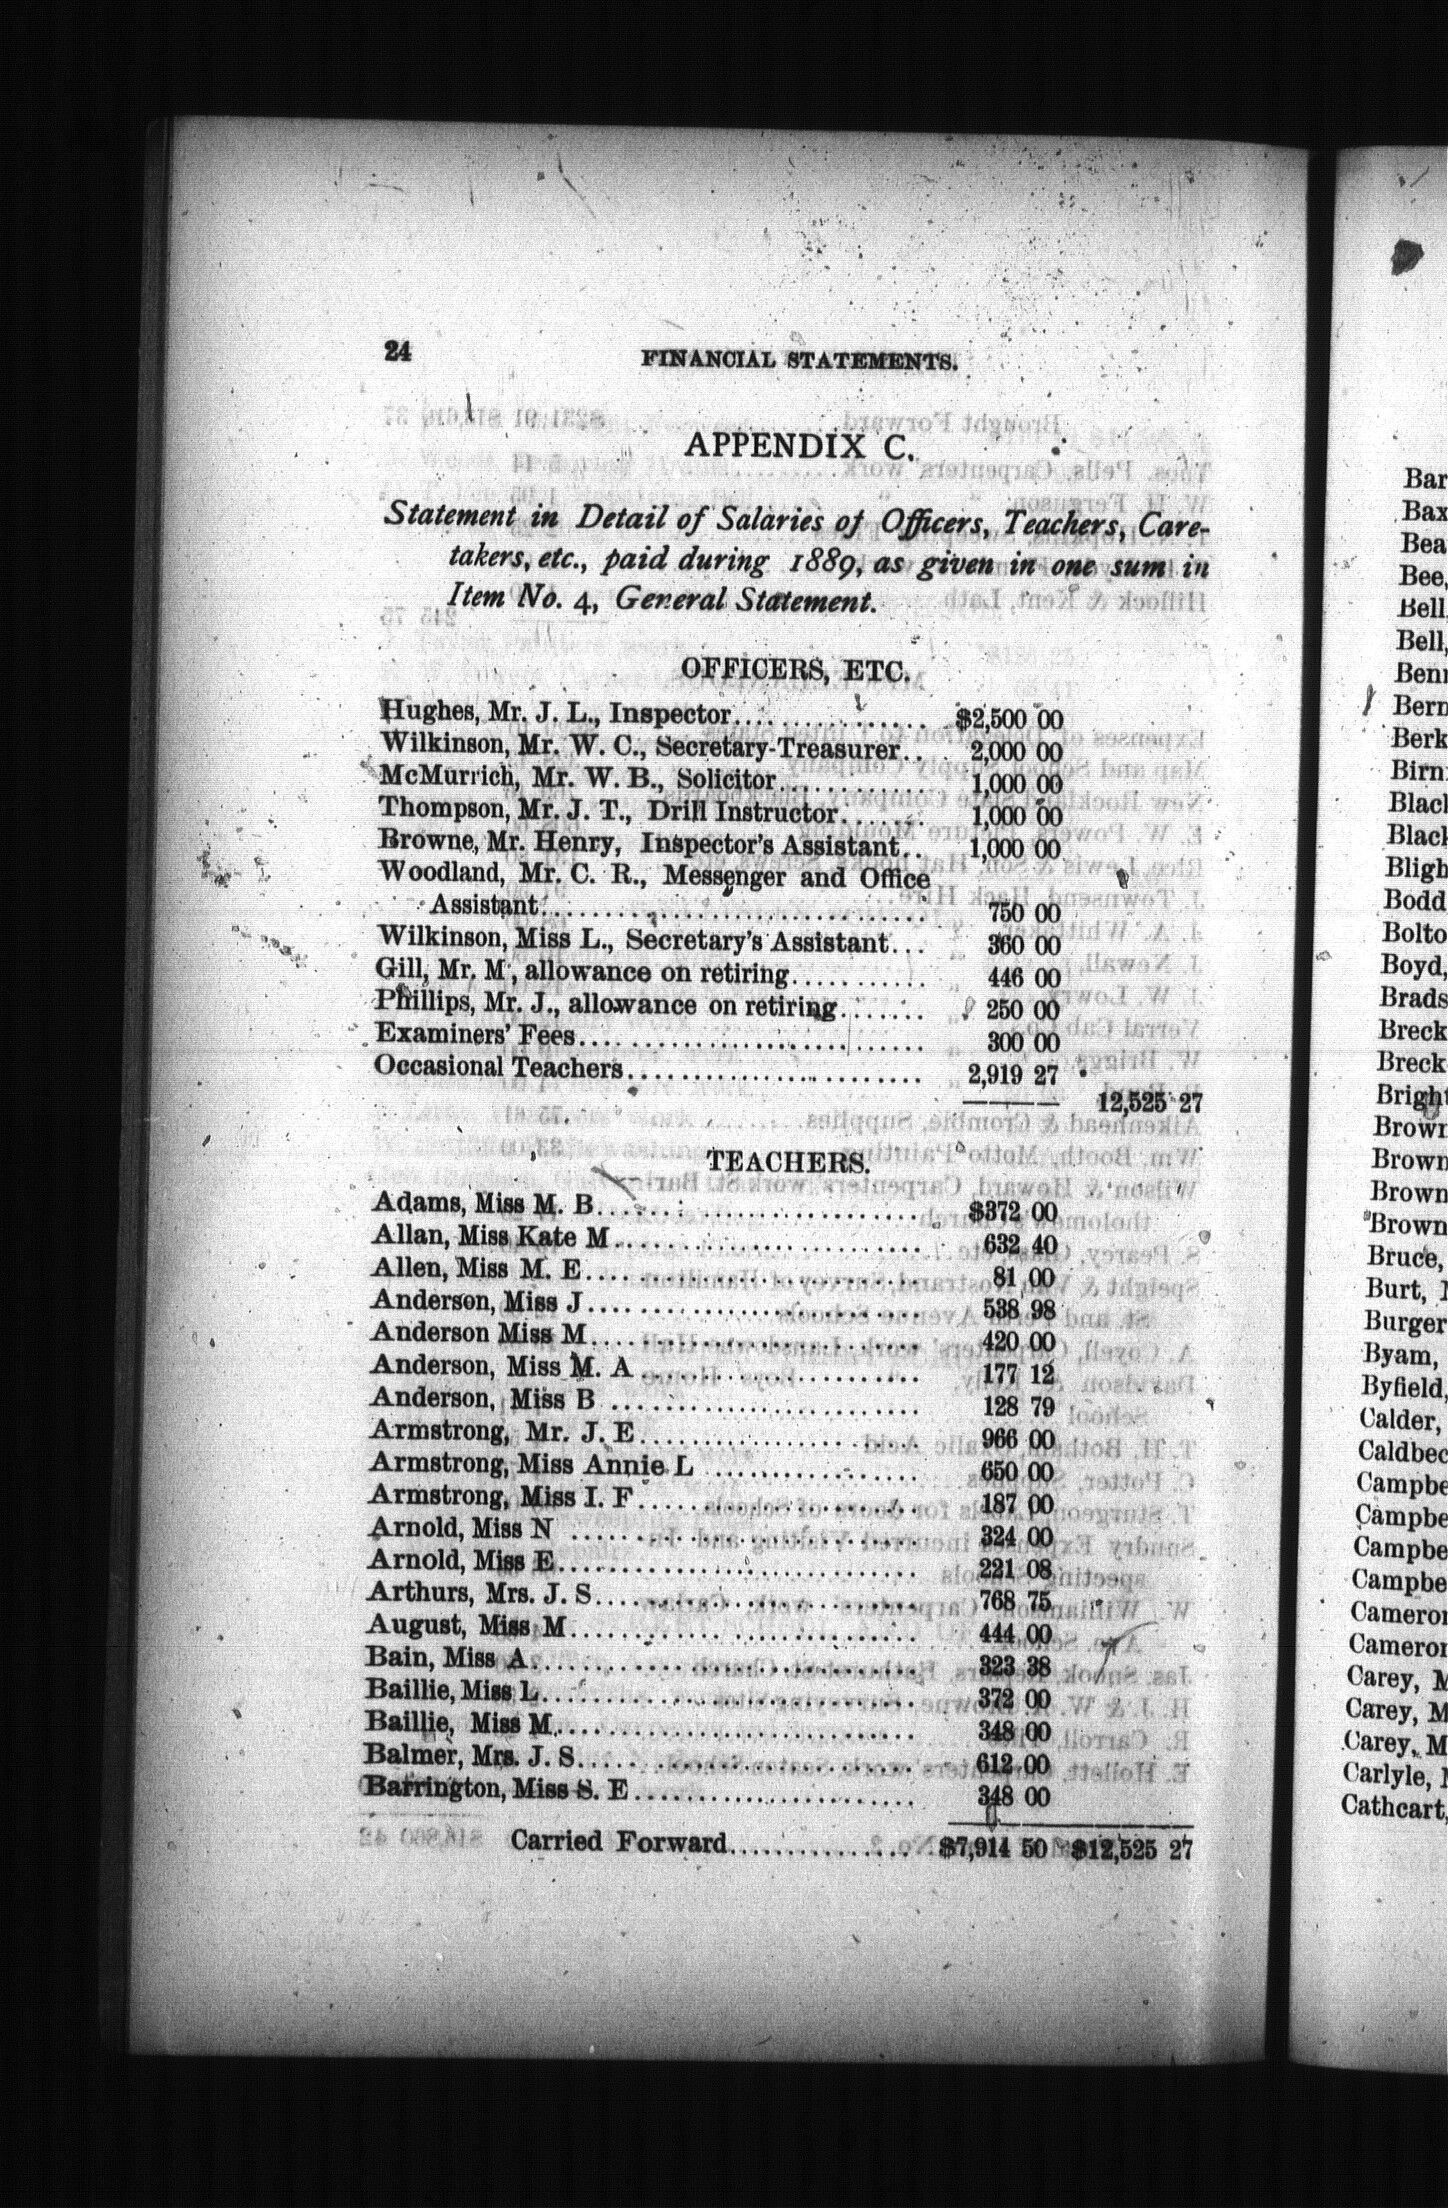 24
FINANCIAL STATEMENTS.
APPENDIX C.
Statement in Detail of Salaries of Officers, Teachers, Care-
takers, etc., paid during 1889, as given in one sum in
Item No. 4, General Statement.
OFFICERS, ETC.
Hughes, Mr. J. L., Inspector................ $2,500 00
Wilkinson, Mr. W. C., Secretary-Treasurer.. 2,000 00
McMurrich, Mr. W. B., Solicitor............ 1,000 00
Thompson, Mr. J. T., Drill Instructor...... 1,000 00
Browne, Mr. Henry, Inspector's Assistant.. 1,000 00
Woodland, Mr. C. R., Messenger and Office
Assistant............................. 750 00
Wilkinson, Miss L., Secretary's Assistant... 360 00
Gill, Mr. M., allowance on retiring........... 446 00
Phillips, Mr. J., allowance on retiring....... 250 00
Examiners' Fees.......................... 300 00
Occasional Teachers...................... 2,919 27
12,525 27
TEACHERS.
Adams, Miss M. B......................... $372 00
Allan, Miss Kate M........................ 632 40
Allen, Miss M. E.......................... 81 00
Anderson, Miss J.......................... 538 98
Anderson Miss M.......................... 420 00
Anderson, Miss M. A ...................... 177 12
Anderson, Miss B ........................ 128 79
Armstrong, Mr. J. E...................... 966 00
Armstrong, Miss Annie L ................ 650 00
Armstrong, Miss I. F...................... 187 00
Arnold, Miss N .......................... 324 00
Arnold, Miss E............................ 221 08
Arthurs, Mrs. J. S........................ 768 75
August, Miss M.......................... 444 00
Bain, Miss A.............................. 323 38
Baillie, Miss L............................ 372 00
Baillie, Miss M............................ 348 00
Balmer, Mrs. J. S.......................... 612 00
Barrington, Miss S. E...................... 348 00
Carried Forward.............. $7,914 50 $12,525 27
Bar
Bax
Bea
Bee,
Bell,
Bell,
Ben
Bern
Berk
Birn
Blac
Blac
Bligh
Bodd
Bolto
Boyd,
Brads
Breck
Breck
Bright
Brown
Brown
Brown
Brown
Bruce,
Burt,
Burger
Byam,
Byfield,
Calder,
Caldbec
Campbe
Campbe
Campbe
Campbe
Cameron
Cameron
Carey, M
Carey, M
Carey, M
Carlyle,
Cathcart,